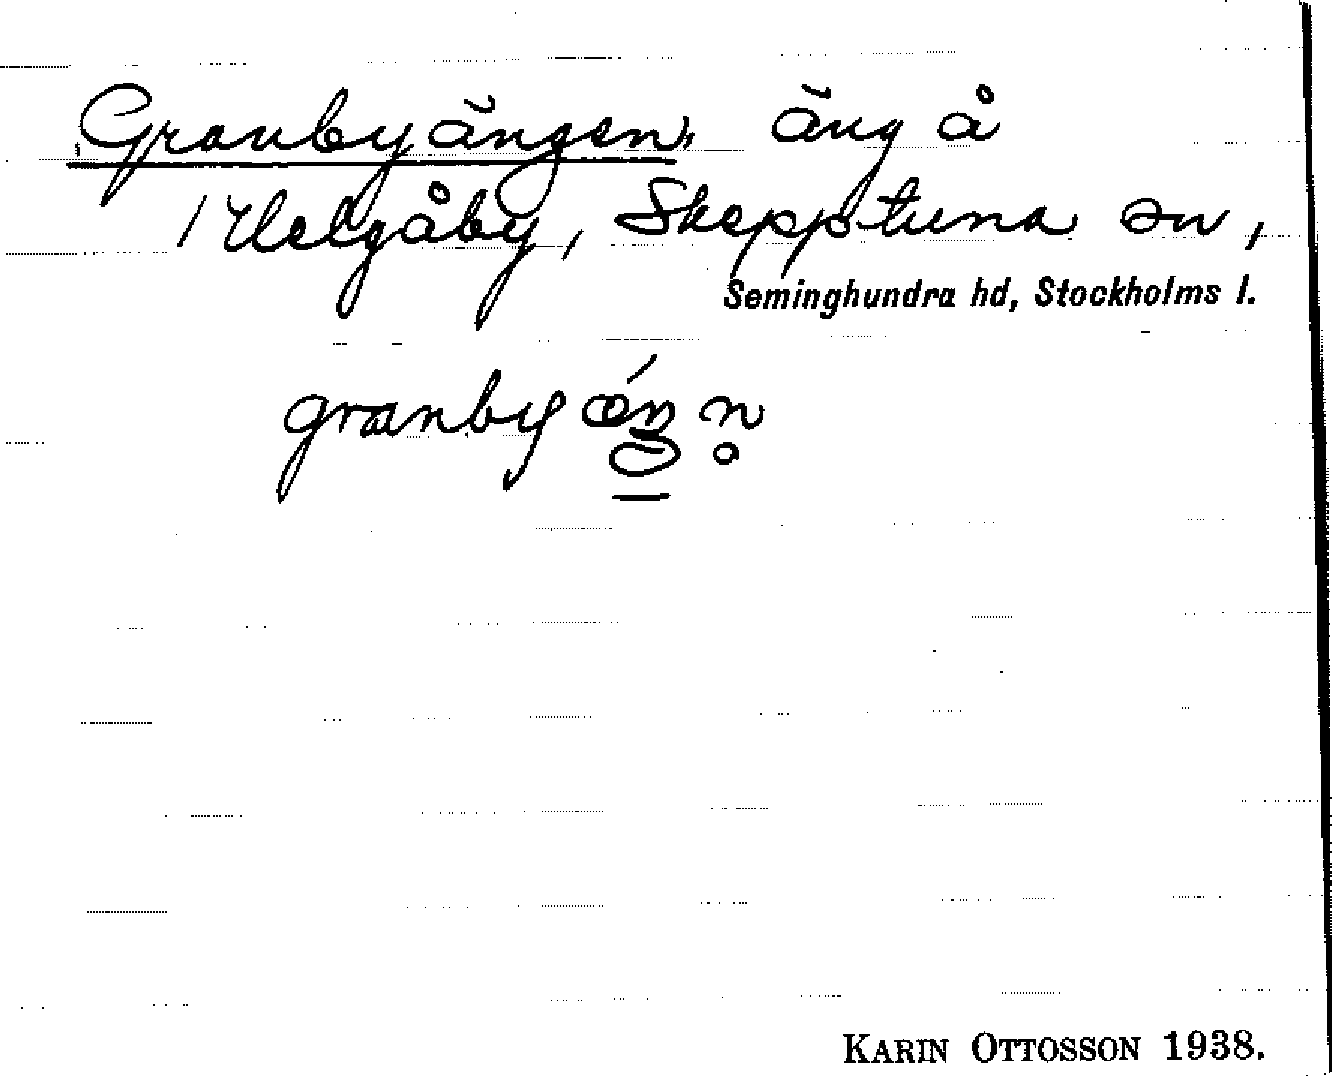 Granbyängen, äng å
1 Helgåby, Skepptuna sn,
Seminghundra hd, Stockholms l.
KARIN OTTOSSON 1938.